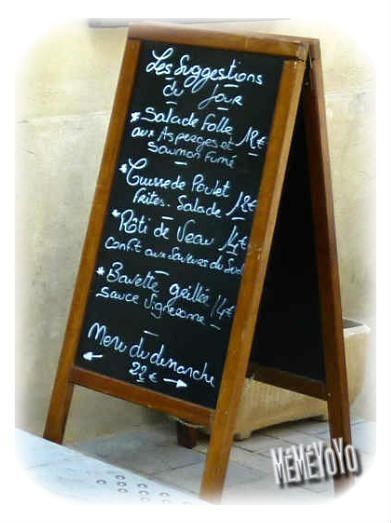 Les Suggestions
du Jour
* Salade Folle 18€
aux Asperges et
Saumon Fumé
* Cuisse de Poulet
Frites. Salade. 12€
* Rôti de Veau 14€
confit aux Saveurs du Sud
* Bavette grillée 14€
Sauce Vigneronne
Menu du dimanche
22€
MéMéYoYo